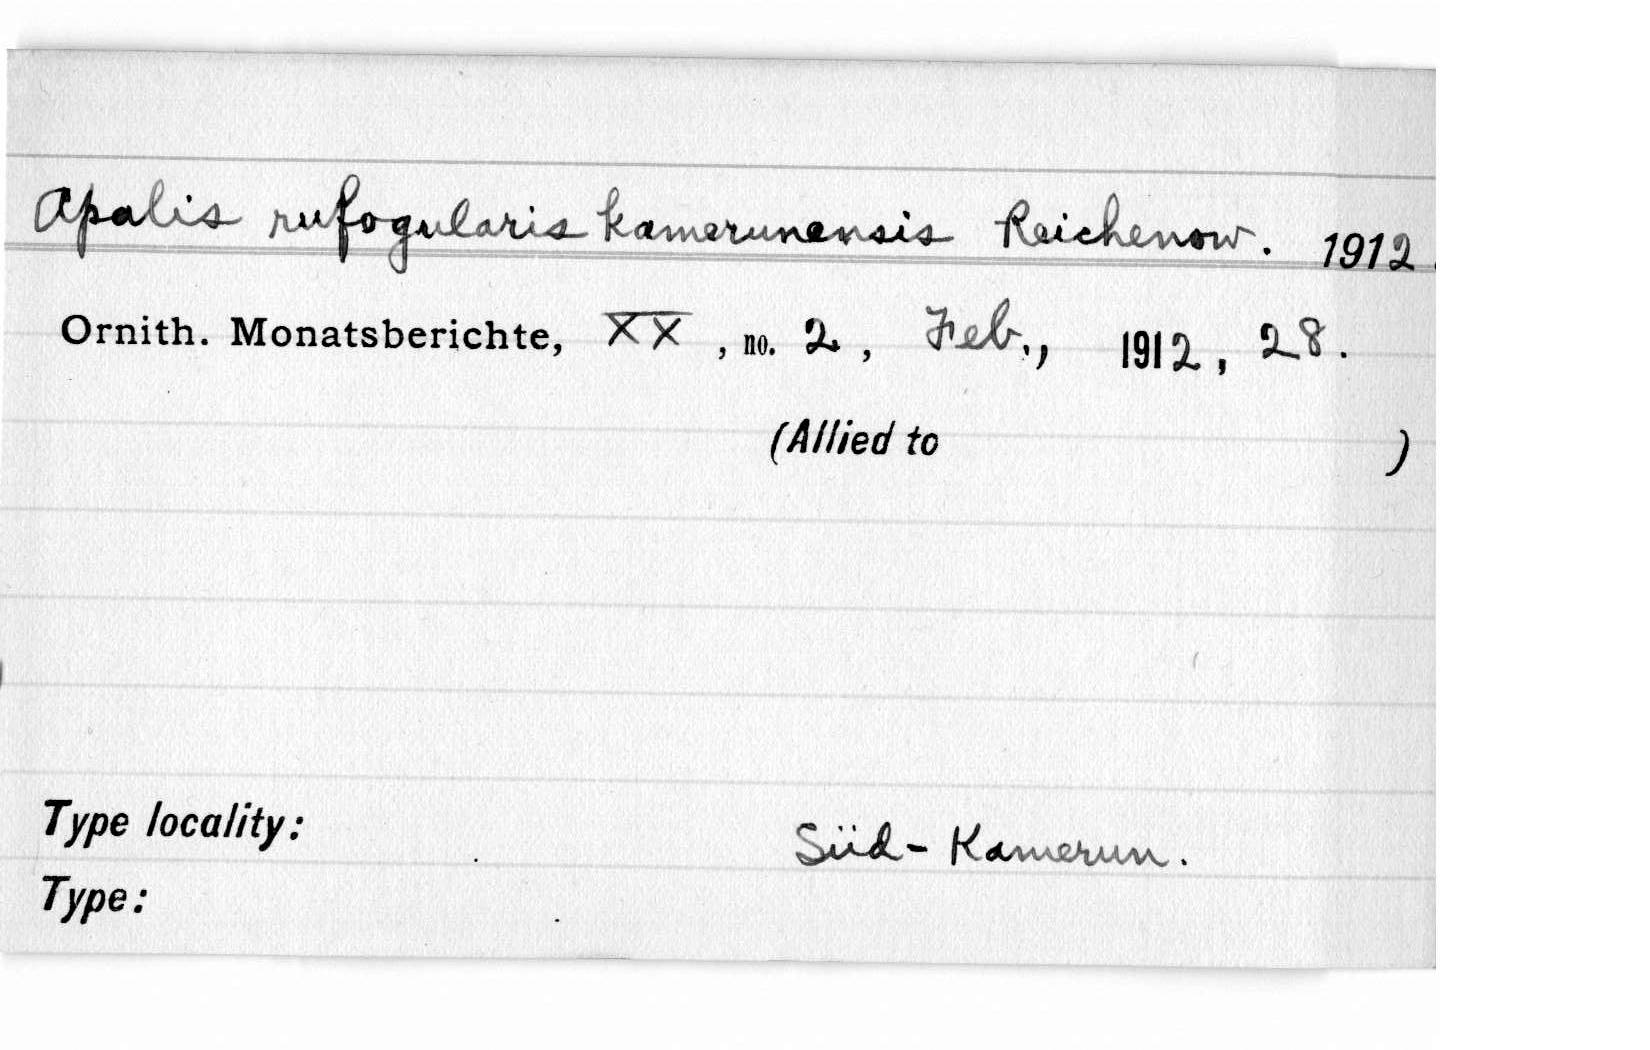 Apalis rufogularis kamerunensis Reichenow. 1912.
Ornith. Monatsberichte, XX, no. 2, Feb., 1912, 28.
(Allied to )
Type locality: Süd-Kamerun.
Type: